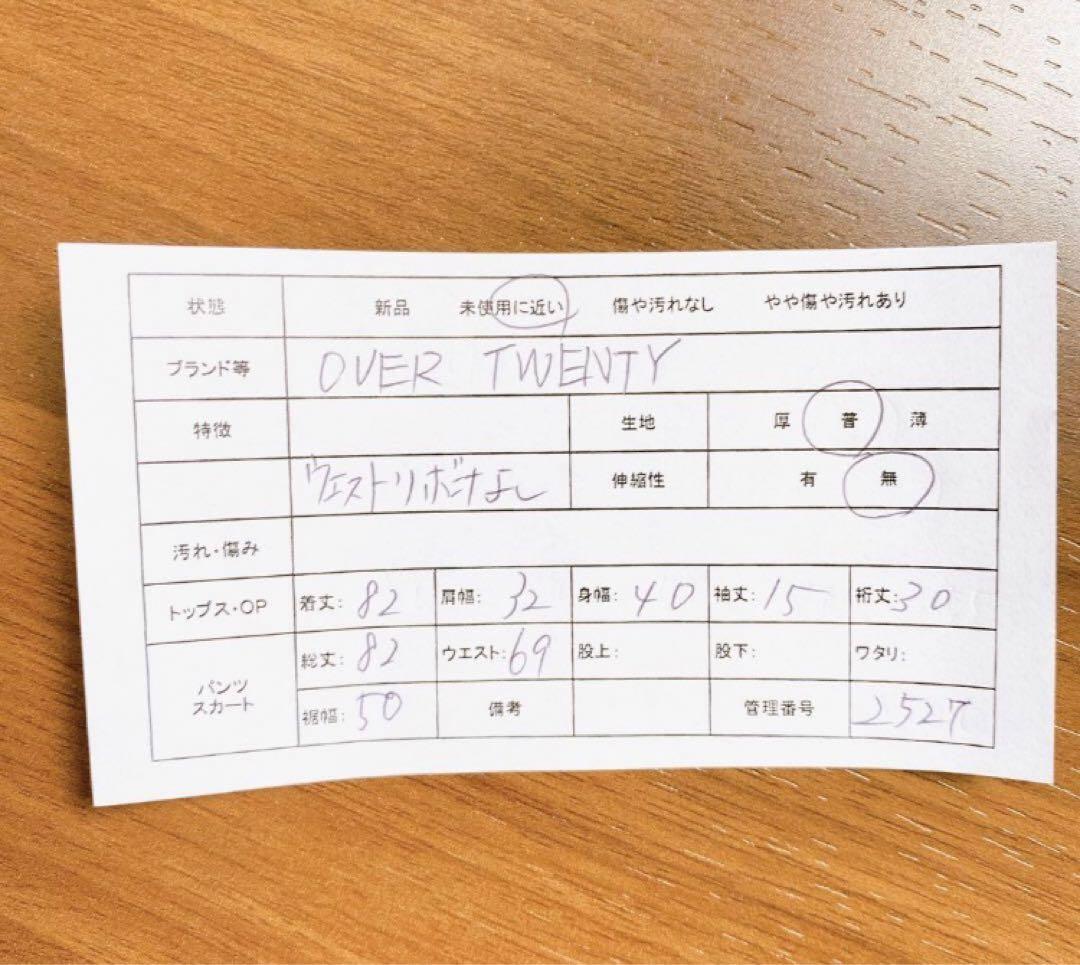 状態 新品 未使用に近い 傷や汚れなし やや傷や汚れあり
ブランド等 OVER TWENTY
特徴 生地 厚 普 薄
ウエストリボンなし 伸縮性 有 無
汚れ・傷み
トップス・OP 着丈: 82 肩幅: 32 身幅: 40 袖丈: 15 裄丈: 30
パンツ スカート 総丈: 82 ウエスト: 69 股上: 股下: ワタリ:
裾幅: 50 備考 管理番号 2527